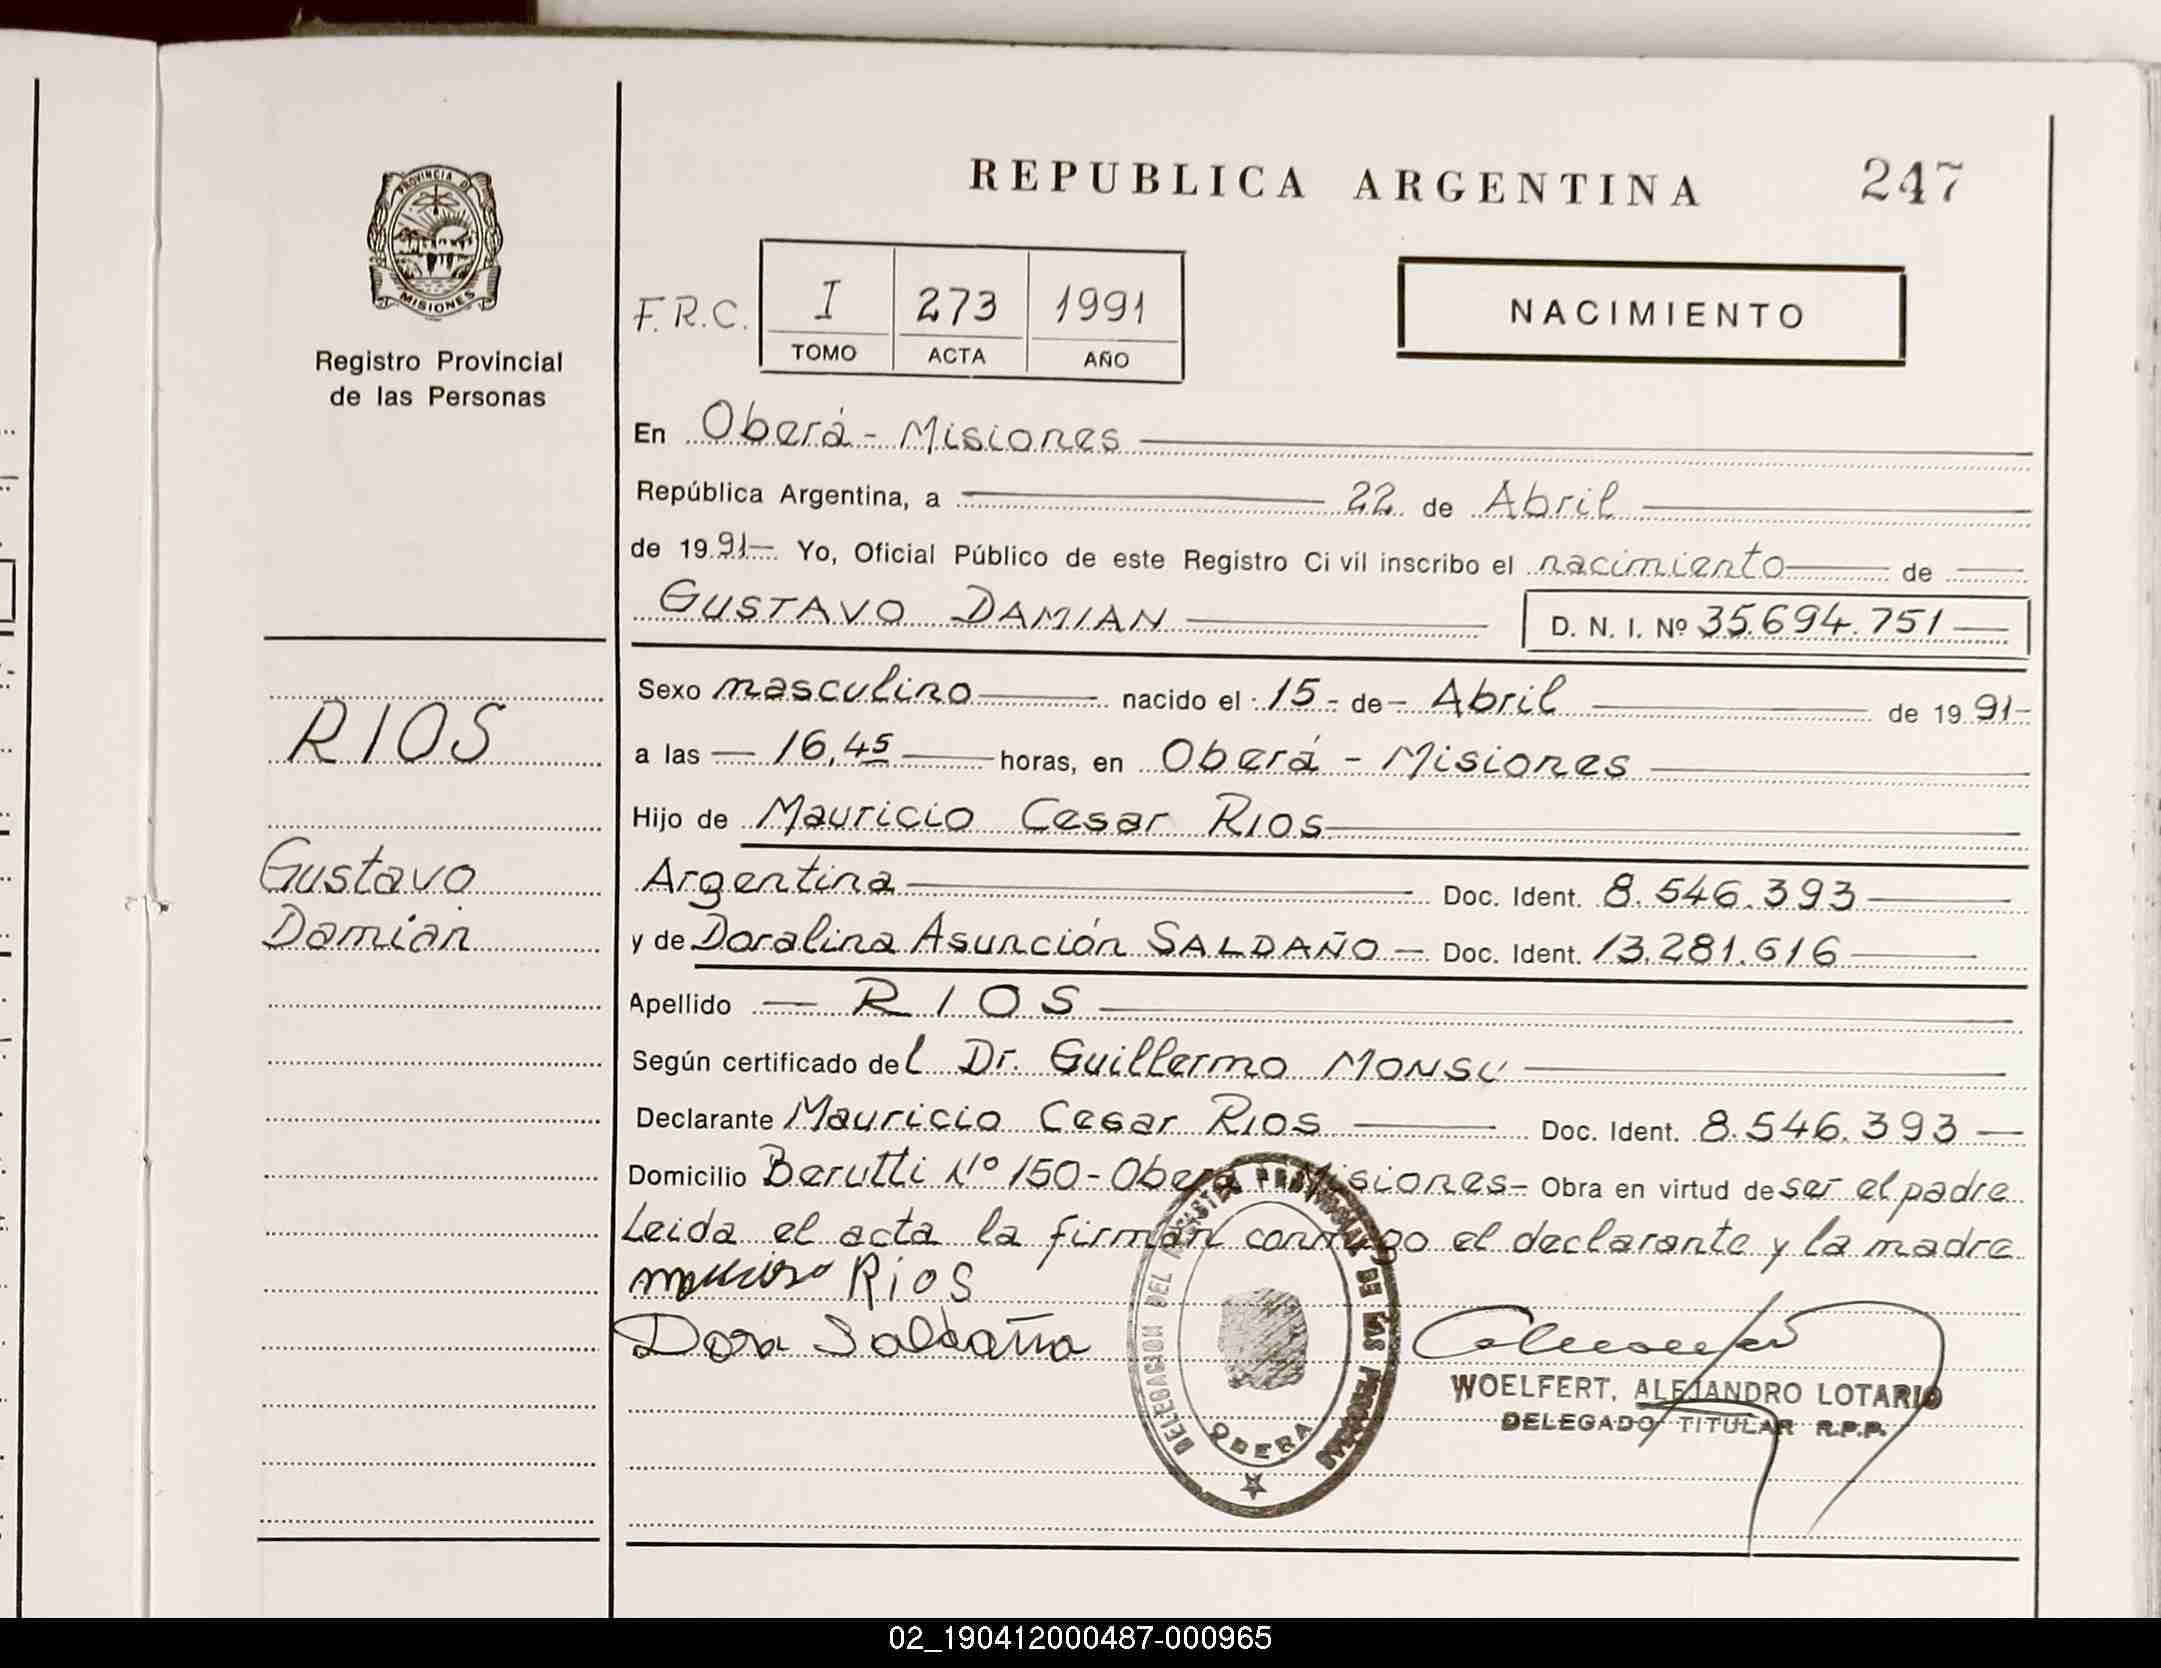 PROVINCIA DE
MISIONES
Registro Provincial
de las Personas
RIOS
Gustavo
Damián
REPUBLICA ARGENTINA 247
F.R.C. I 273 1991
TOMO ACTA AÑO
NACIMIENTO
En Oberá - Misiones
República Argentina, a 22 de Abril
de 1991 Yo, Oficial Público de este Registro Civil inscribo el nacimiento de
GUSTAVO DAMIAN D. N. I. Nº 35.694.751
Sexo masculino nacido el 15 de Abril de 1991
a las 16,45 horas, en Oberá - Misiones
Hijo de Mauricio Cesar RIOS
Argentina Doc. Ident. 8.546.393
y de Doralina Asunción SALDAÑO Doc. Ident. 13.281.616
Apellido RIOS
Según certificado del Dr. Guillermo MONSU
Declarante Mauricio Cesar RIOS Doc. Ident. 8.546.393
Domicilio Berutti Nº 150 - Oberá Misiones - Obra en virtud de ser el padre
Leida el acta la firman conmigo el declarante y la madre
Rios
Dora Saldaña
DELEGACION DEL REGISTRO PROVINCIAL DE LAS PERSONAS
OBERA
WOELFERT, ALEJANDRO LOTARIO
DELEGADO TITULAR R.P.P.
02_190412000487-000965